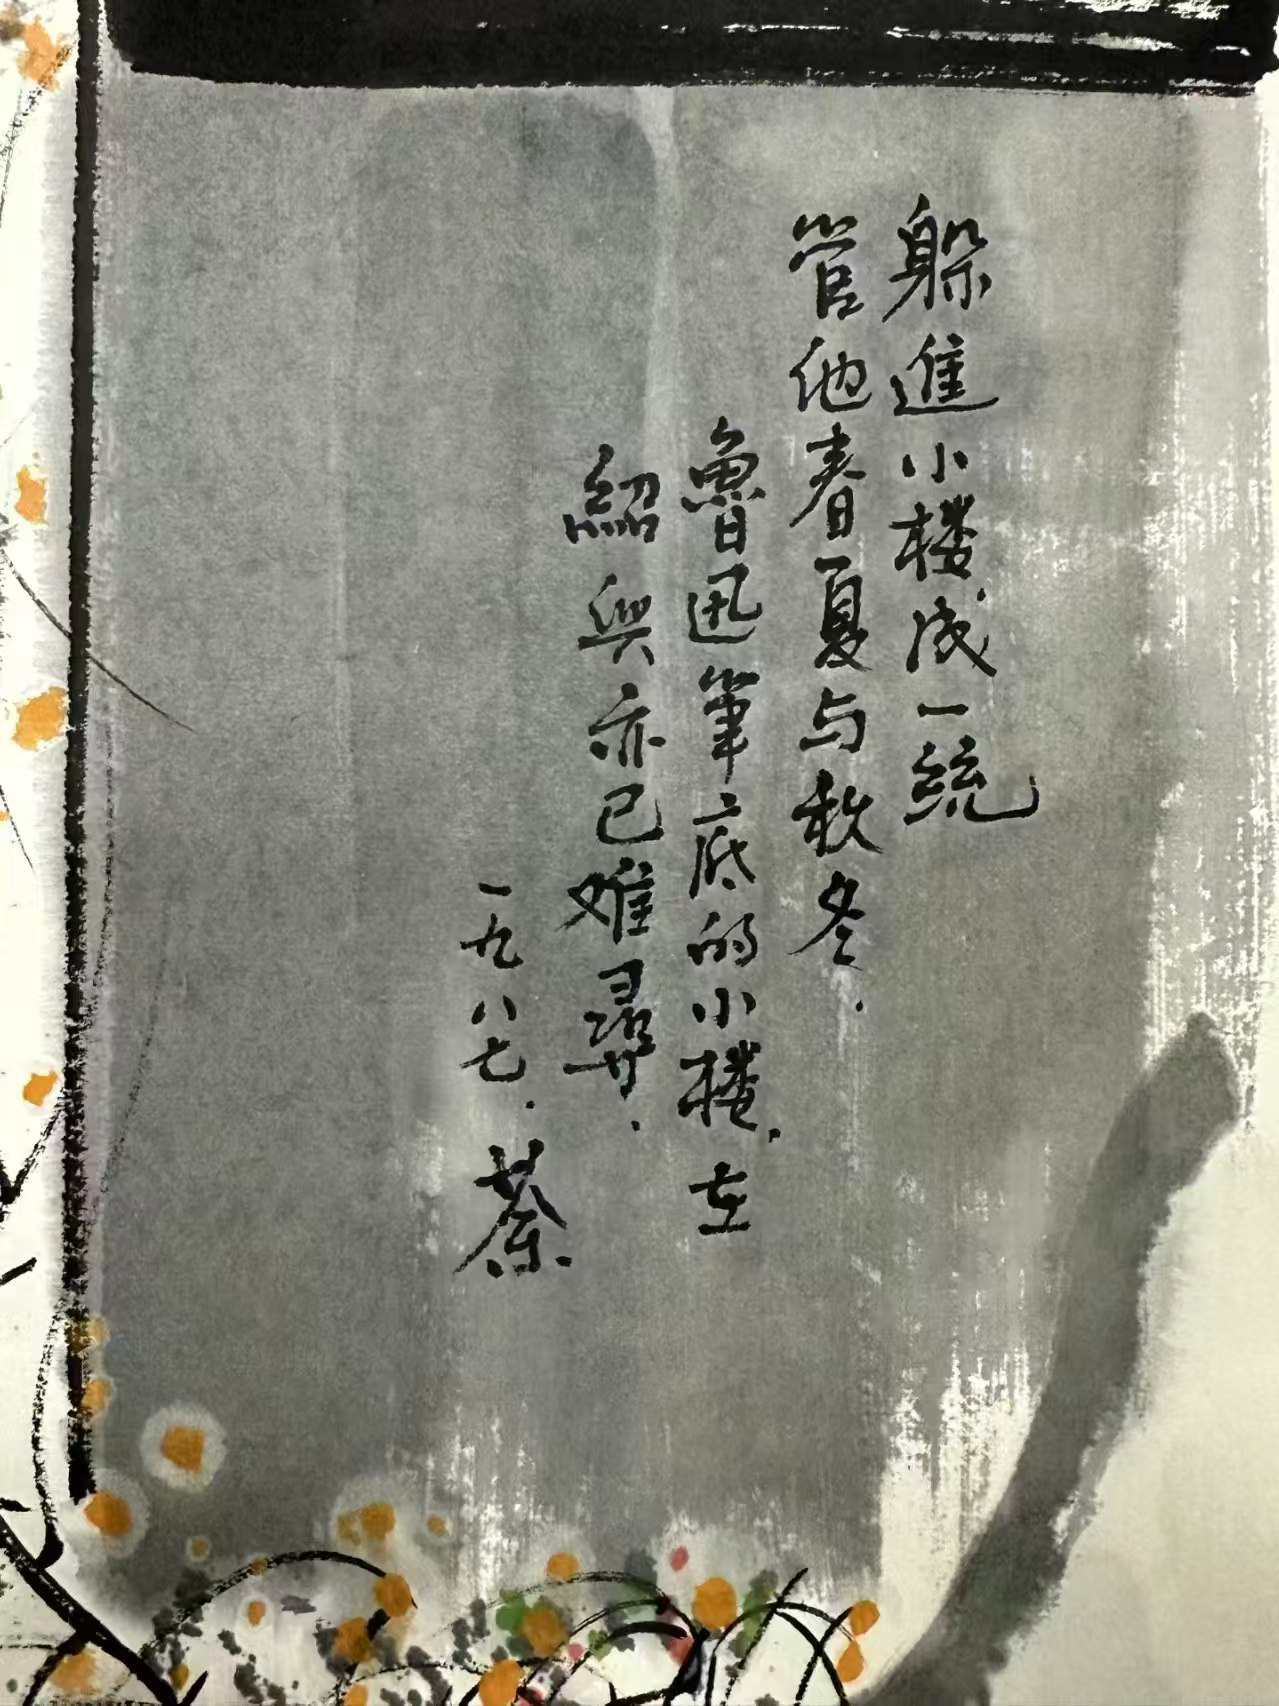 躲進小楼成一統
管他春夏与秋冬.
魯迅筆底的小楼.在
紹興亦已难尋.
一九八七.荼.